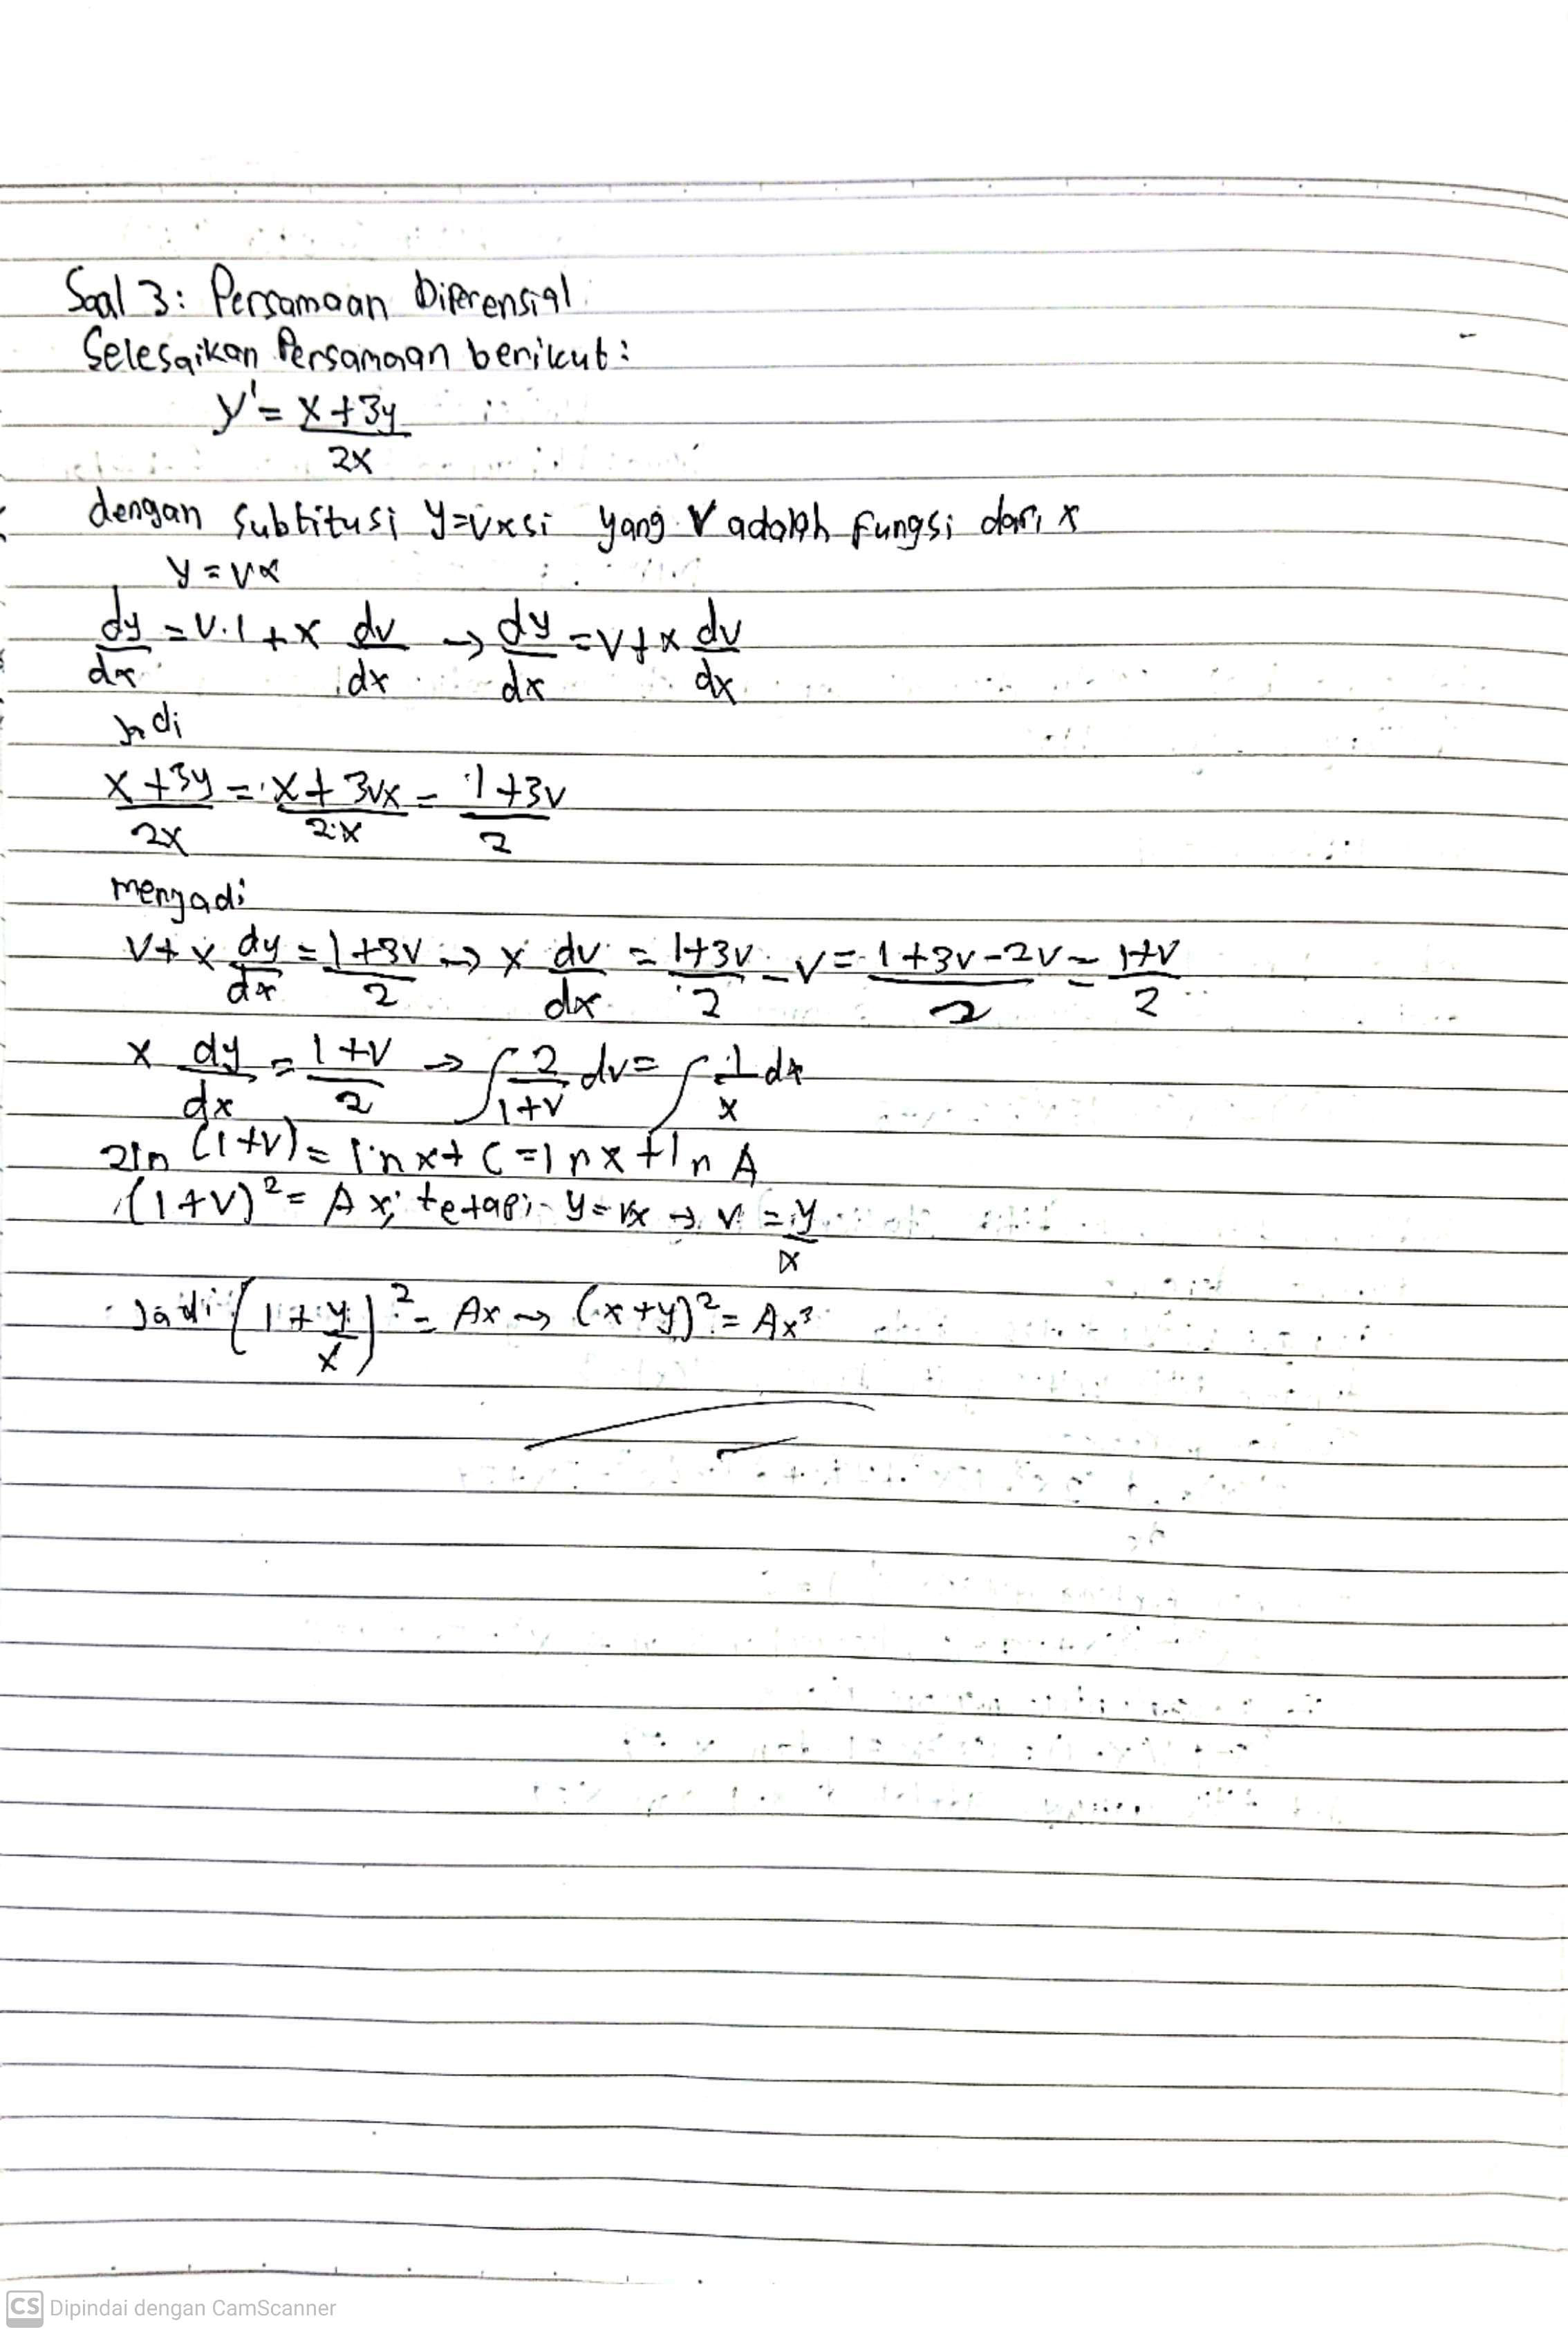 Soal 3: Persamaan Diferensial
Selesaikan Persamaan berikut:
y' = x+3y / 2x
dengan Subtitusi y=vxsi yang v adalah fungsi dari x
y = vx
dy/dx = v.1 + x dv/dx → dy/dx = v + x dv/dx
Jadi
x+3y / 2x = x+3vx / 2x = 1+3v / 2
menjadi
v + x dy/dx = 1+3v / 2 → x dv/dx = 1+3v / 2 - v = 1+3v-2v / 2 = 1+v / 2
x dy/dx = 1+v / 2 → ∫ 2/1+v dv = ∫ 1/x dx
2ln (1+v) = ln x + C = ln x + ln A
(1+v)² = Ax; tetapi y=vx → v = y/x
Jadi (1 + y/x)² = Ax → (x+y)² = Ax³
CS Dipindai dengan CamScanner